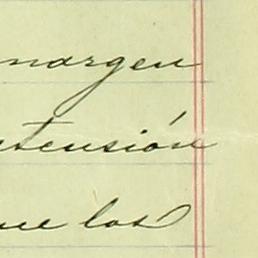 margen
tensión
ue los